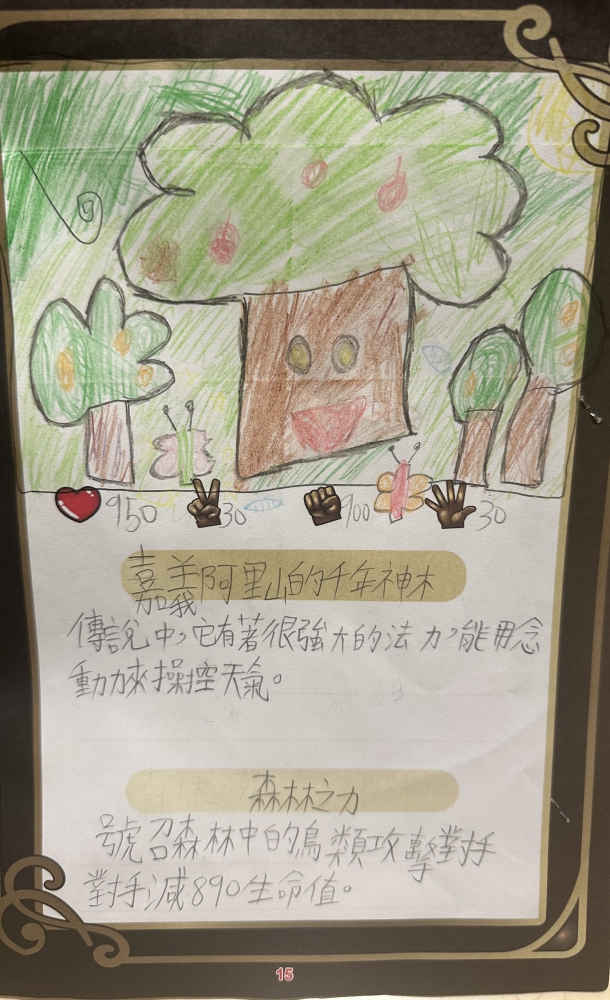 950 30 100 30
嘉義阿里山的千年神木
傳說中,它有著很強大的法力,能用念
動力來操控天氣。
森林之力
號召森林中的鳥類攻擊對手
對手減890生命值。
15